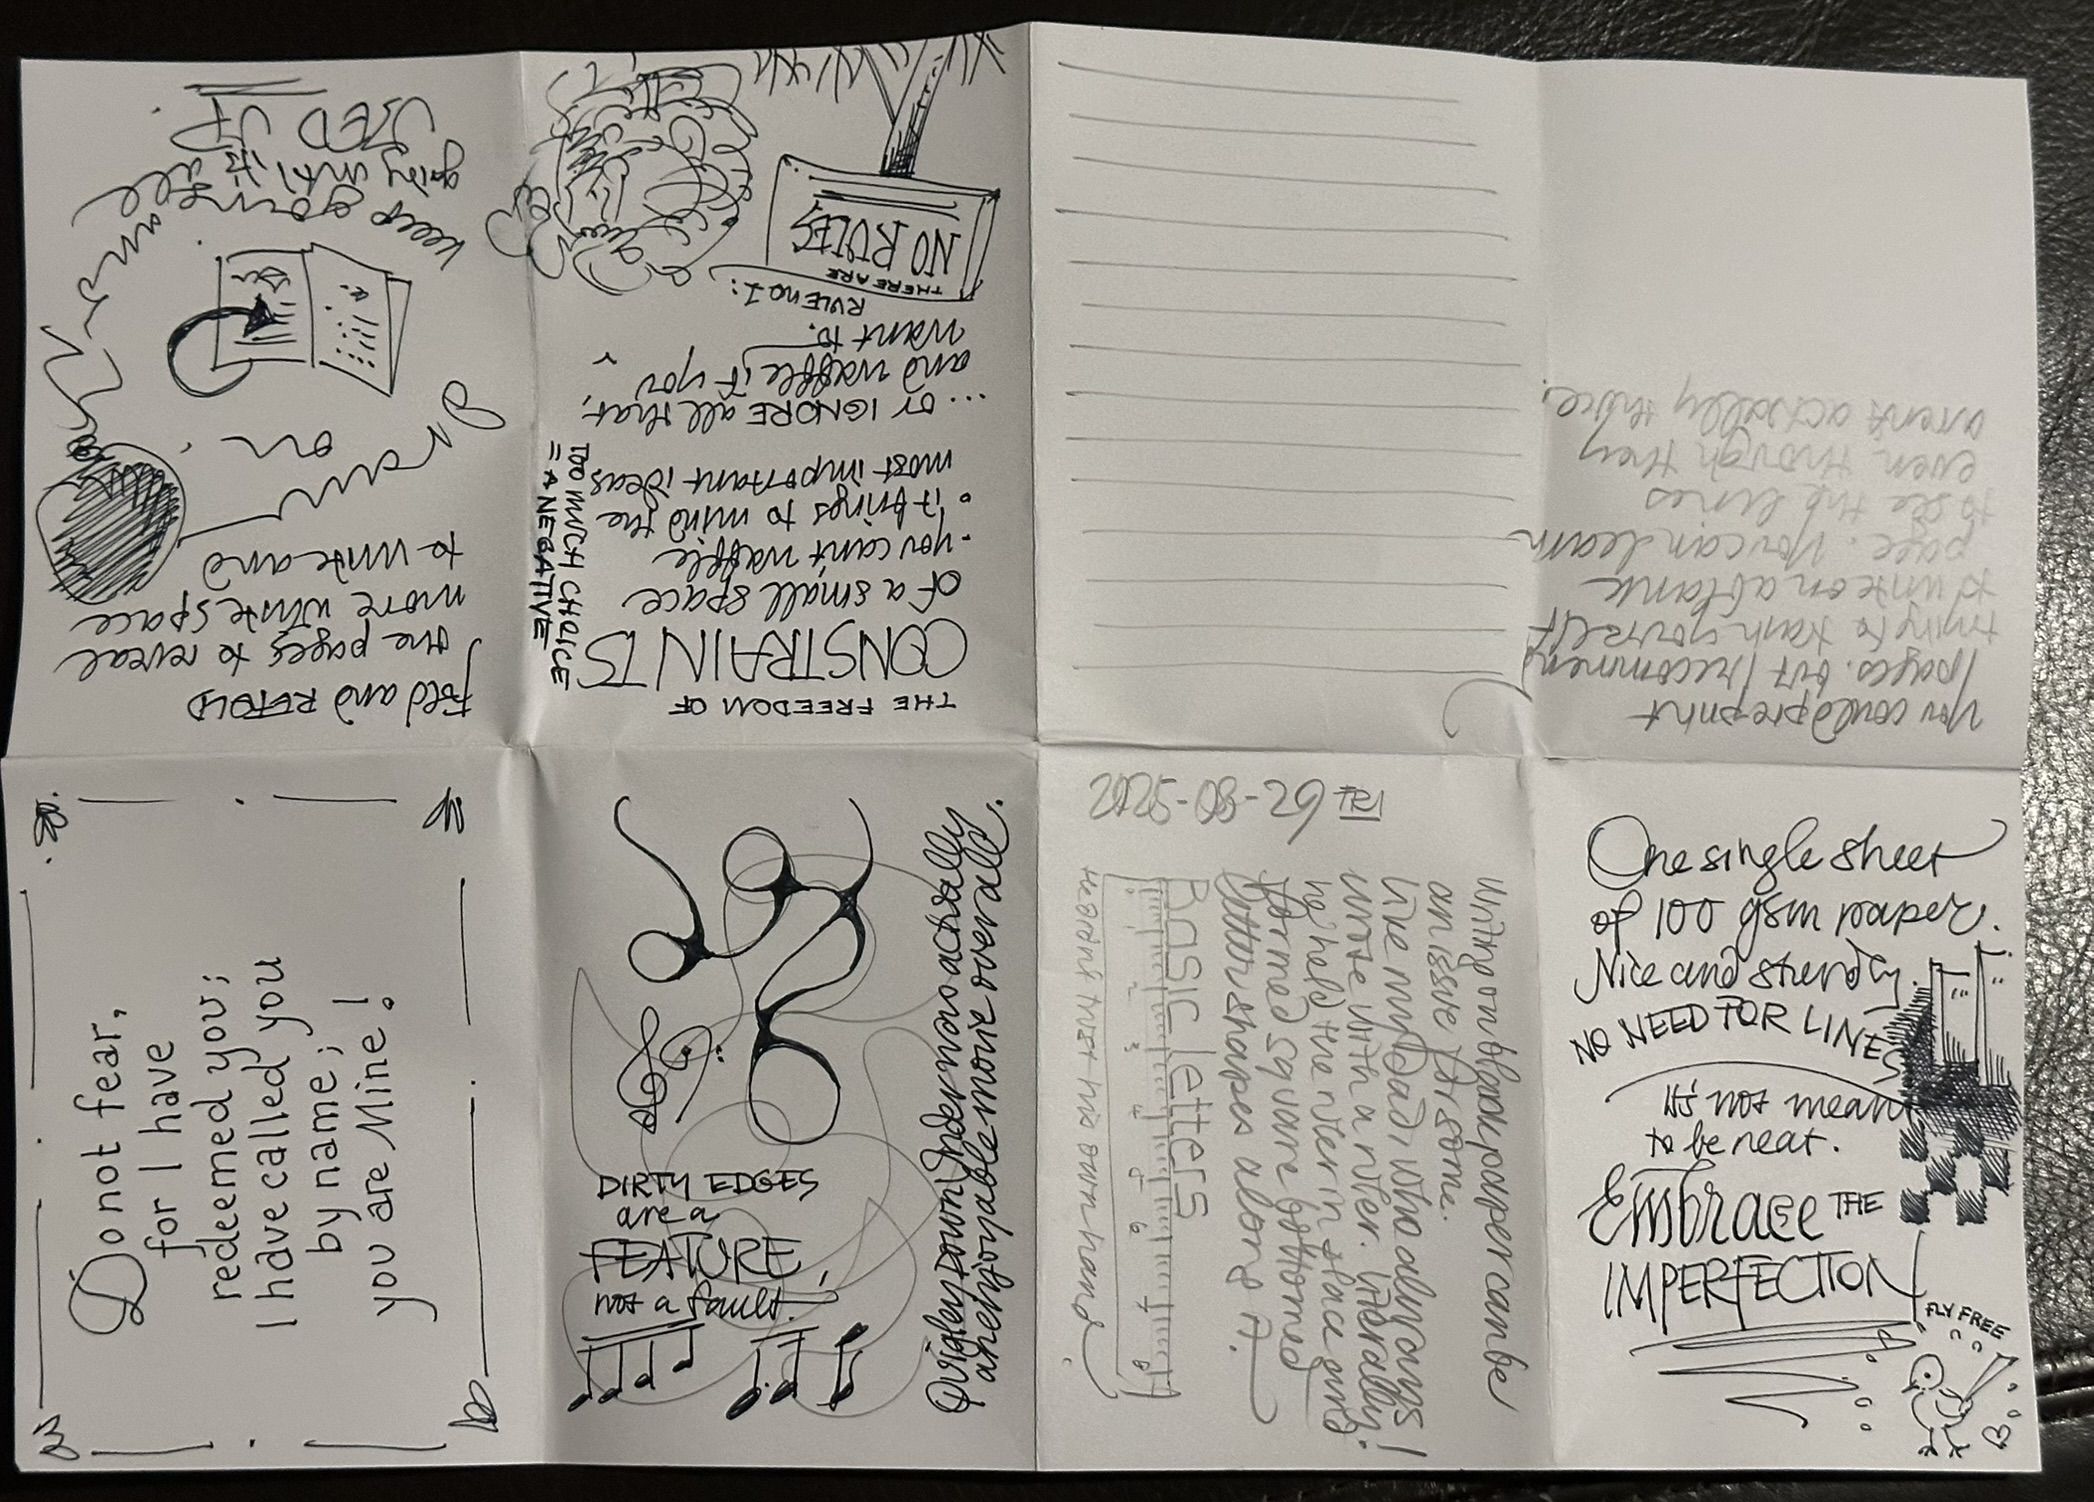 fold and REFOLD
the pages to reveal
more white space
to write and
draw
on
and
keep yourself
going until it's all
USED UP
THE FREEDOM OF
CONSTRAINTS
of a small space
- you can't waffle
• it brings to mind the
most important ideas
TOO MUCH CHOICE
= A NEGATIVE
... or IGNORE all that,
and waffle if you
want to.
RULE no 1:
THERE ARE
NO RULES
You could pre-print
pages. but I recommend
trying to train yourself
to write on a blank
page. You can learn
to see the lines
even through they
arent actually there.
Do not fear,
for I have
redeemed you;
I have called you
by name;
you are Mine!
DIRTY EDGES
are a
FEATURE,
not a fault.
Quigley Down Under was actually
an enjoyable movie overall.
2025-08-29 FRI
Writing on blank paper can be
an issue for some.
Like my Dad, who always
wrote with a ruler. Literally!
he held the ruler in place and
formed square bottomed
letter shapes along it.
Basic letters
1 2 3 4 5 6 7 8
He didn't trust his own hand
One single sheet
of 100 gsm paper.
Nice and sturdy.
NO NEED FOR LINES
It's not meant
to be neat.
Embrace THE
IMPERFECTION
FLY FREE